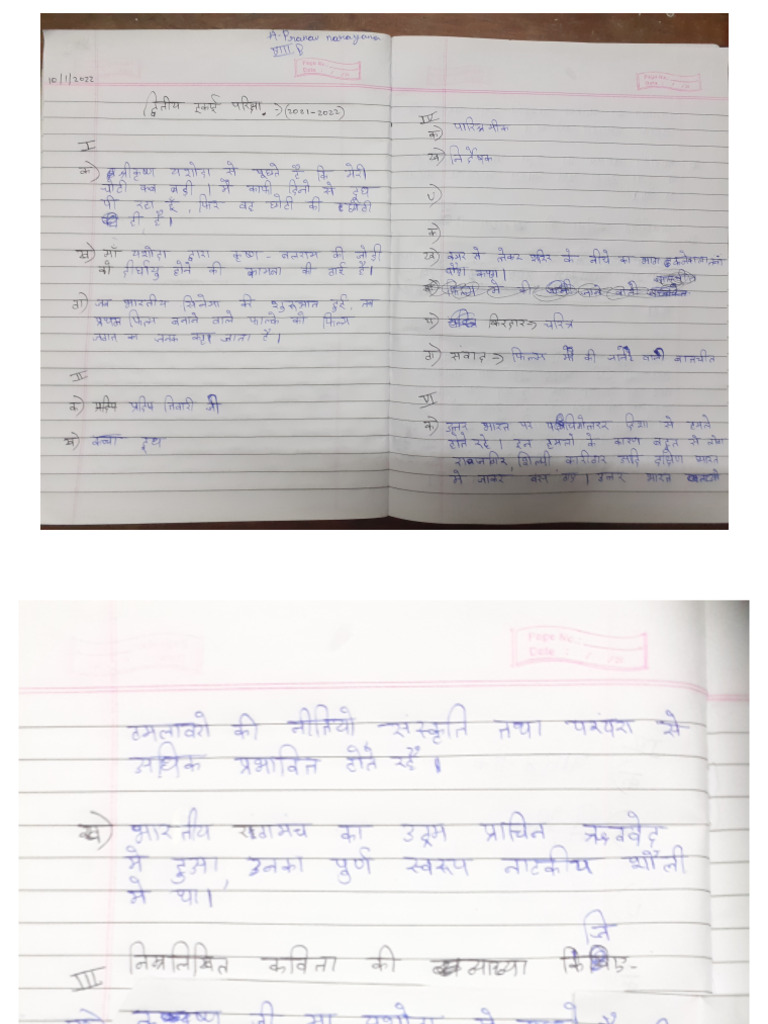 A. Pranav narayana
VIII B
Page No.
Date
10/1/2022
द्वितीय इकाई परिक्षा :-) (2021-2022)
I
क) श्रीकृष्ण यशोदा से पूछते है कि मेरी
चोटी कब बड़ी । मैं काफी दिनो से दूध
पी रहा हूँ, फिर वह छोटी की छोटी
ही है।
ख) माँ यशोदा द्वारा कृष्ण - बलराम की जोड़ी
को दीर्घायु होने की कामना की गई है।
ग) जब भारतीय सिनेमा की शुरूआत हुई, तब
प्रथम फिल्म बनाने वाले फाल्के को फिल्म
जगत का जनक कहा जाता है।
II
क) प्रदिप तिवारी जी
ख) कच्चा दूध
Page No.
Date
IV
क) पारिश्रमीक
ख) निर्देषक
V)
क)
ख) कमर से लेकर शरिर के नीचे का भाग
घ) किरदार => चरित्र
ग) संवाद => फिल्म में की जाने वाली बातचीत
VI
क) उत्तर भारत पर पश्चिमोत्तर दिशा से हमले
होते रहे। इन हमलो के कारण बहुत से लोग
राजगीर, शिल्पी, कारीगर आदि दक्षिण भारत
मे जाकर बस गए। उत्तर भारत
Page No.:
Date :
हमलावरो की नीतियो, संस्कृति तथा परंपरा से
अधिक प्रभावित होते रहें।
ख) भारतीय रंगमंच का उद्गम प्राचिन ऋग्वेद
मे हुआ, उनका पुर्ण स्वरूप नाटकीय शौली
मे था।
III निम्नलिखित कविता की व्याख्या किजिए-
जी मा यशोदा से